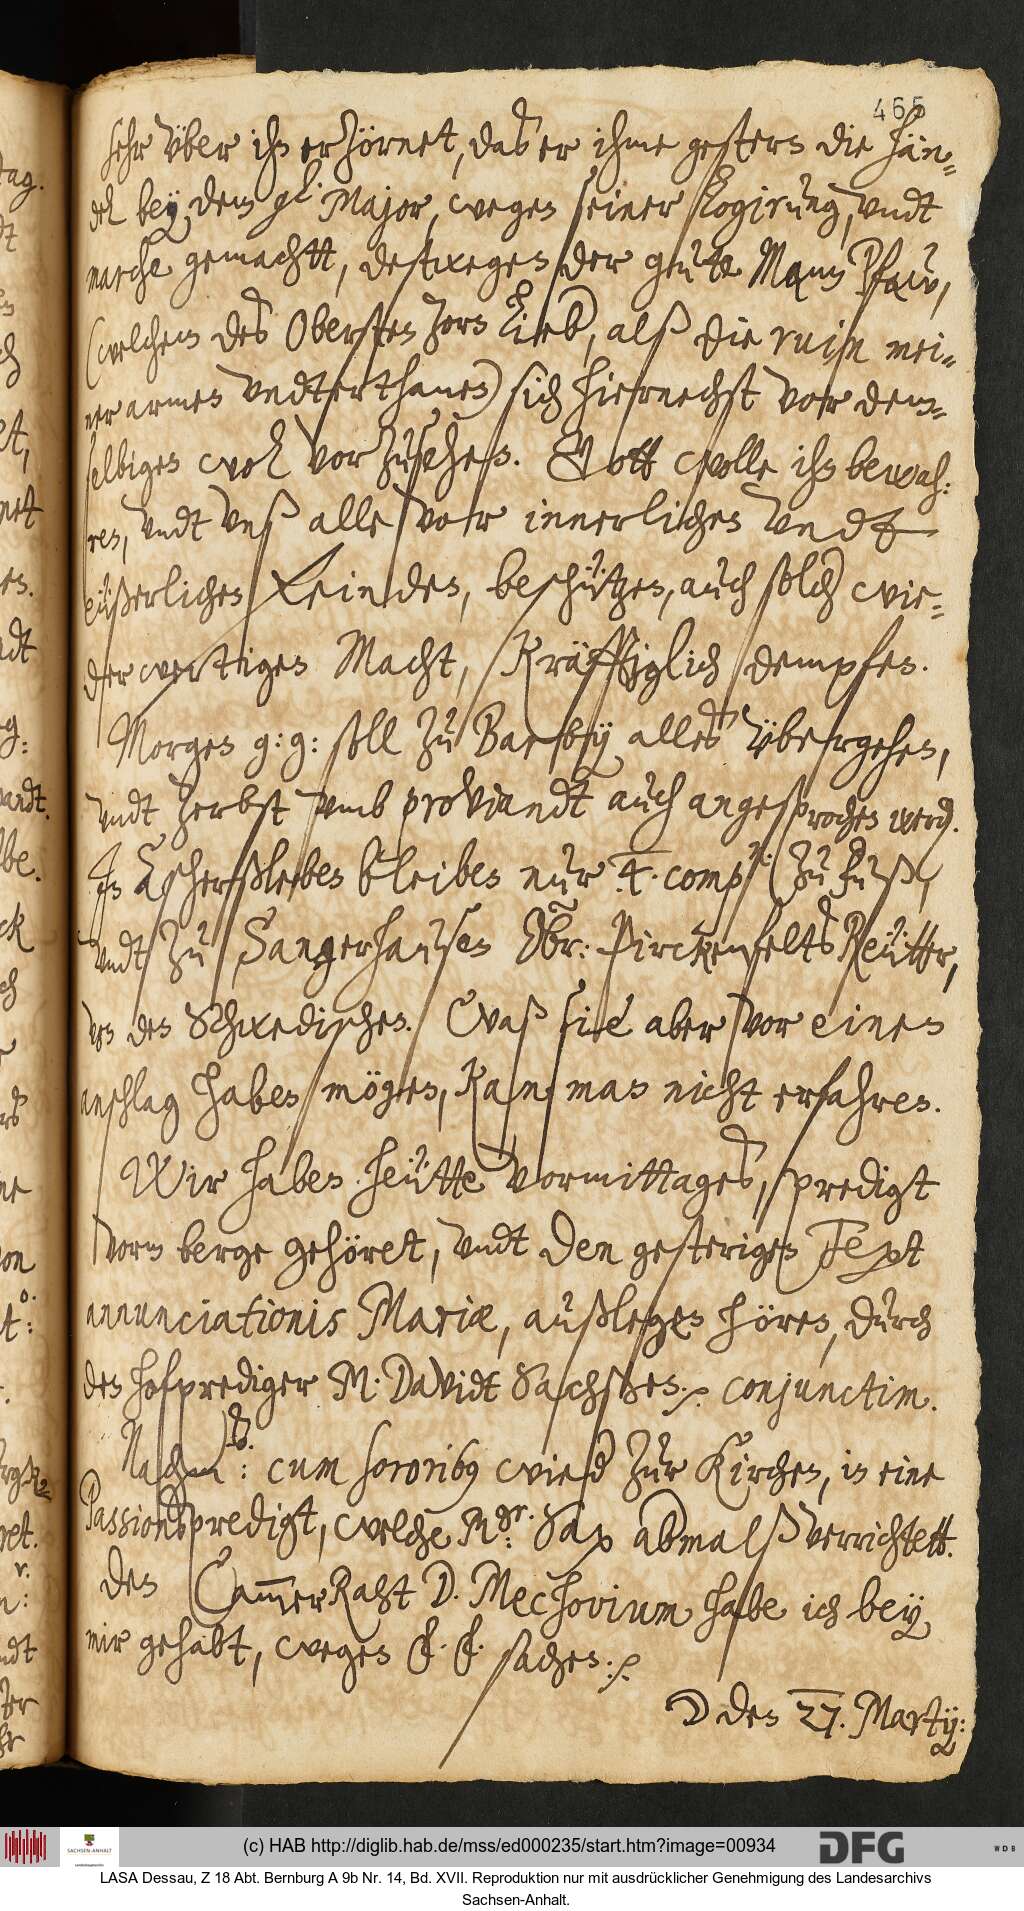 465
sehr vber ihn erzörnet, daß er ihme gestern die hän-
del bey dem gl. Major, wegen seiner logirung, vndt
marche gemachtt, destwegen der guhte Mann Pfaw,
(welchem des Obersten zorn lieb, alß die ruin mei-
ner armen vndterthanen) sich hiernechst vor dem-
selbigen wol vorzusehen. Gott wolle ihn bewah:
ren, vndt vnß alle vor innerlichen vndt
eüßerlichen Feinden, beschützen, auch solch wie-
derwertigen Macht, Kräfftiglich dempfen.
Morgen g: g: soll zu Barby alles vbergehen,
vndt Zerbst vmb proviandt auch angesprochen werd.
In Aschersleben bleiben nur 4. comp.n zu fuß,
vndt zu Sangerhausen Obr: Pirckenfelts Reütter,
von den Schwedischen. Waß sie aber vor einen
anschlag haben mögen, Kan man nicht erfahren.
Wir haben heütte vormittages, predigt
vorm berge gehöret, vndt den gesterigen Text
annunciationis Mariæ, außlegen hören, durch
den hofprediger M. Davidt Sachßen. conjunctim.
Nachm.s: cum sororibus wied zur Kirchen, in eine
Passionspredigt, welche Mgr: Sax abmalß verrichtett.
Den CammerRaht D. Mechovium habe ich bey
mir gehabt, wegen sachen.
den 27. Martij:
(c) HAB http://diglib.hab.de/mss/ed000235/start.htm?image=00934
SACHSEN-ANHALT
DFG
WDB
LASA Dessau, Z 18 Abt. Bernburg A 9b Nr. 14, Bd. XVII. Reproduktion nur mit ausdrücklicher Genehmigung des Landesarchivs
Sachsen-Anhalt.